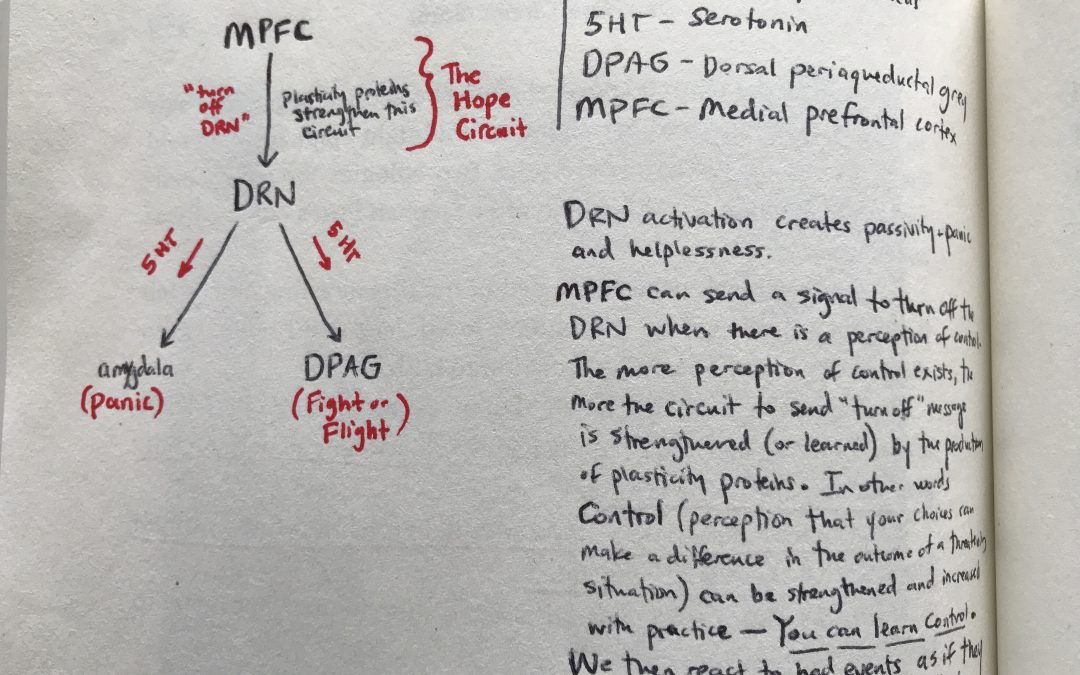 MPFC
"turn
off
DRN"
Plasticity proteins
strengthen this
circuit
The
Hope
Circuit
DRN
5HT
5HT
amygdala
(panic)
DPAG
(Fight or
Flight)
5HT - Serotonin
DPAG - Dorsal periaqueductal grey
MPFC - Medial prefrontal cortex
DRN activation creates passivity + panic
and helplessness.
MPFC can send a signal to turn off the
DRN when there is a perception of control.
The more perception of control exists, the
more the circuit to send "turn off" message
is strengthened (or learned) by the production
of plasticity proteins. In other words
Control (perception that your choices can
make a difference in the outcome of a threatening
situation) can be strengthened and increased
with practice — You can learn control.
We then react to bad events as if they